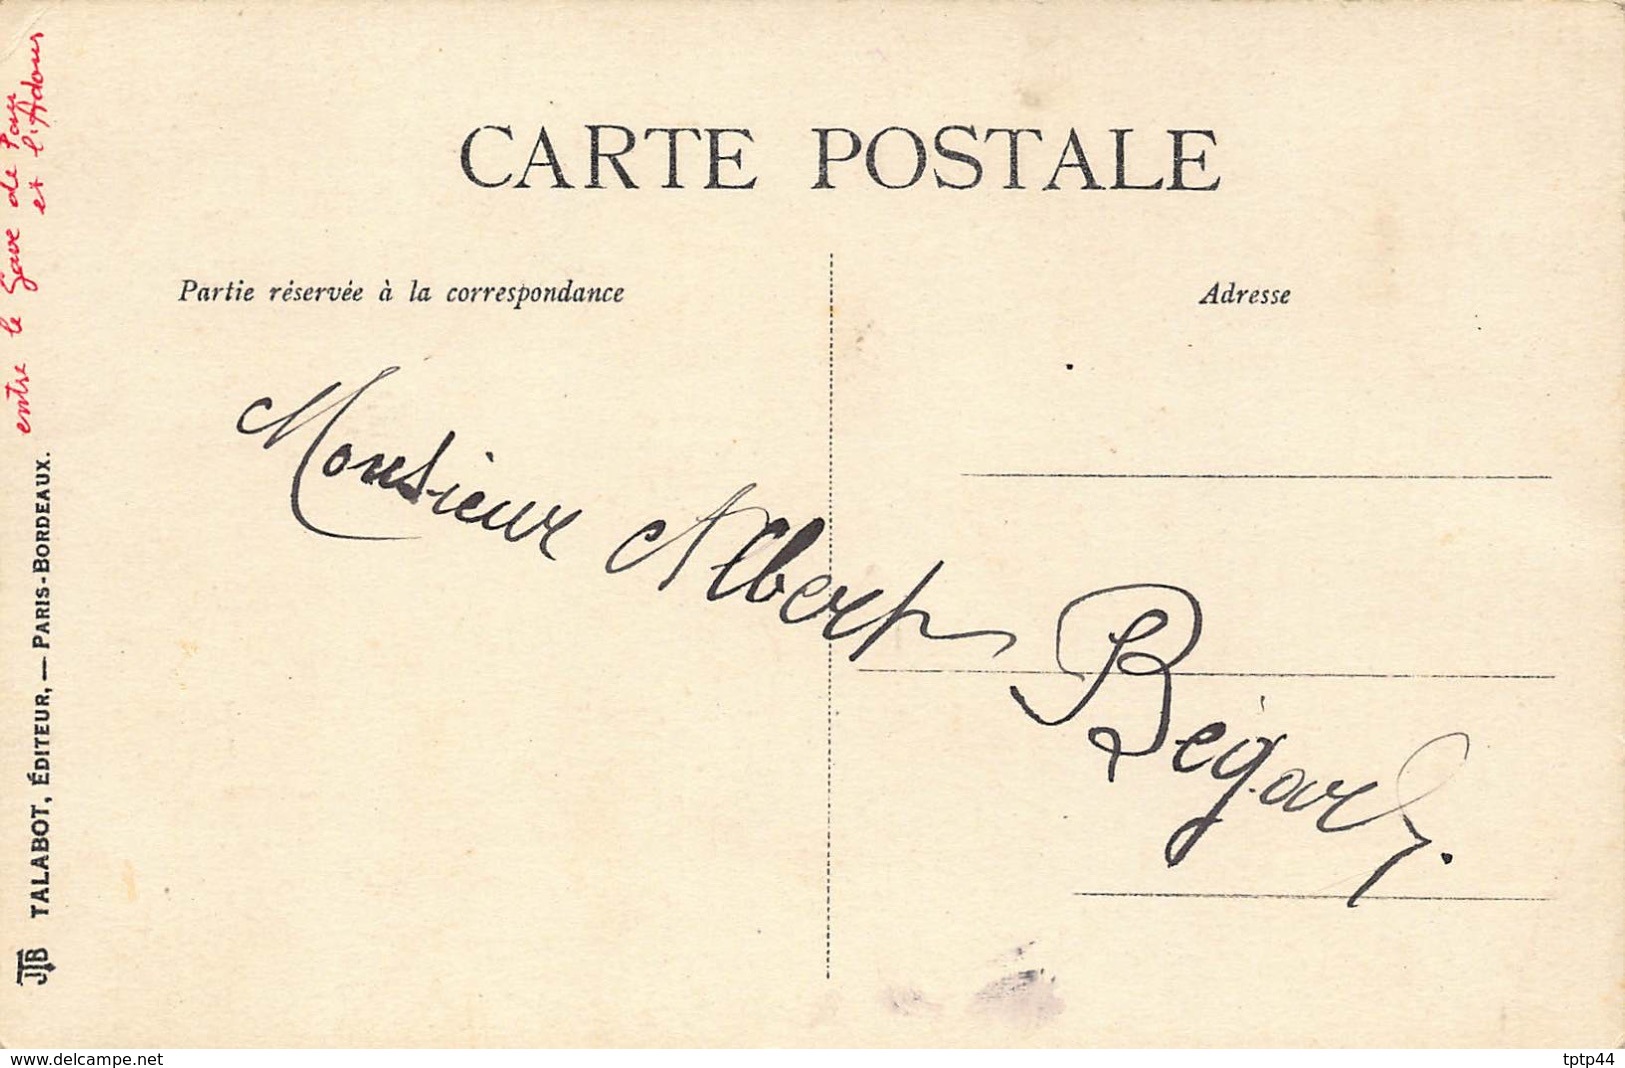 CARTE POSTALE
Partie réservée à la correspondance
Adresse
Monsieur Albert Bégard.
entre le Gave de Pau
et l'Adour
JTB TALABOT, ÉDITEUR, — PARIS-BORDEAUX.
www.delcampe.net
tptp44